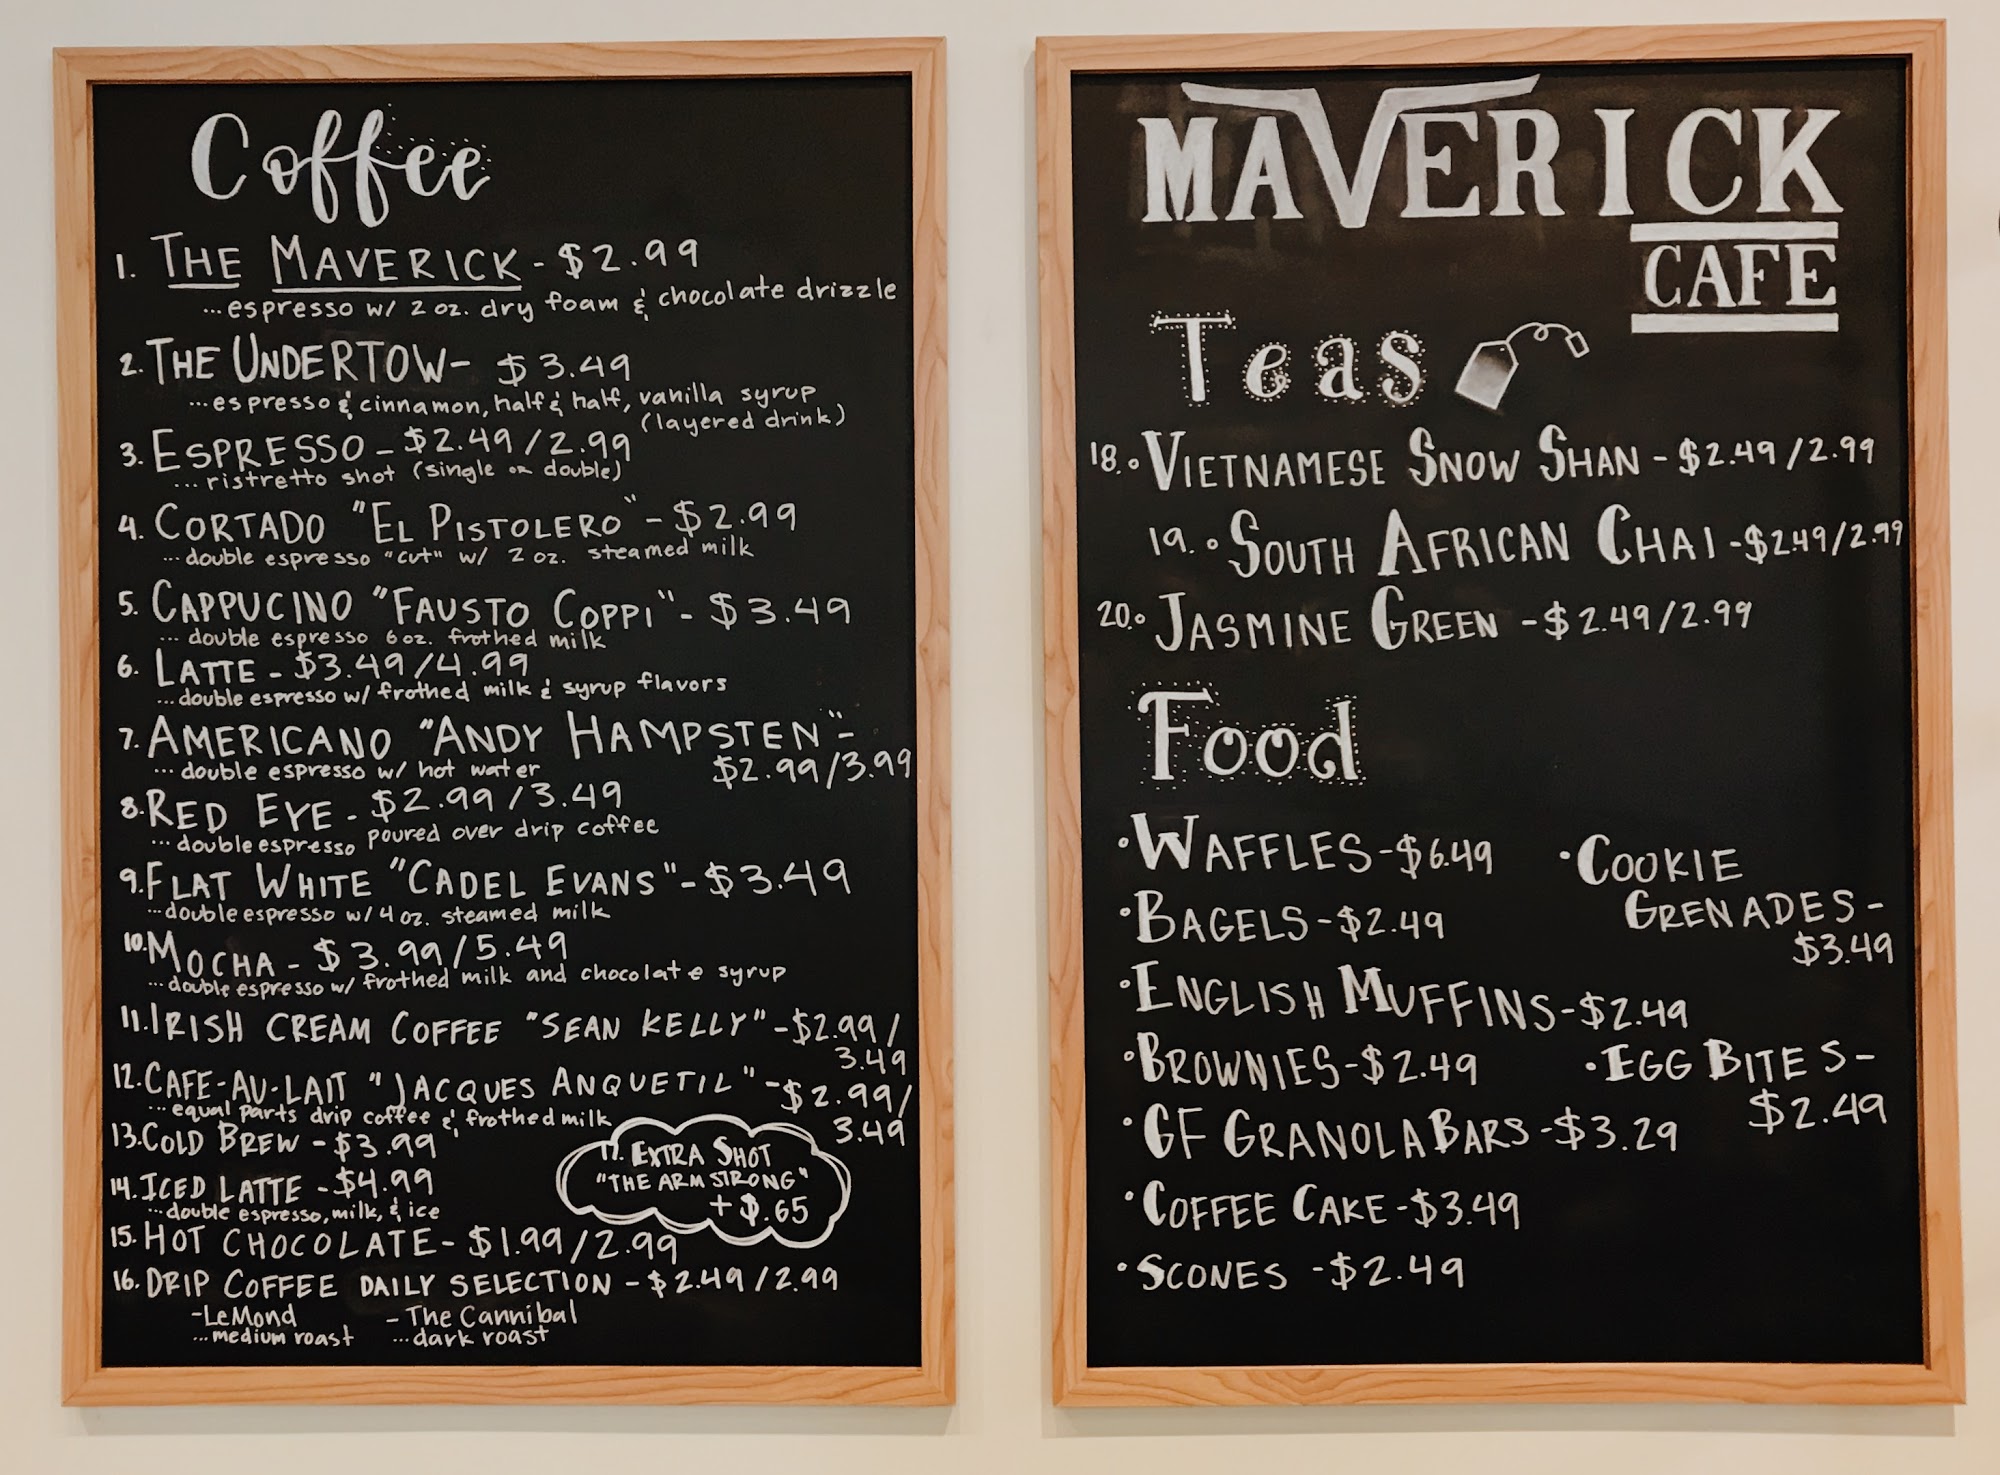 Coffee
1. THE MAVERICK - $2.99
...espresso w/ 2 oz. dry foam & chocolate drizzle
2. THE UNDERTOW- $3.49
...espresso & cinnamon, half & half, vanilla syrup
(layered drink)
3. ESPRESSO - $2.49/2.99
...ristretto shot (single or double)
4. CORTADO "EL PISTOLERO" - $2.99
...double espresso "cut" w/ 2 oz. steamed milk
5. CAPPUCINO "FAUSTO COPPI" - $3.49
...double espresso 6oz. frothed milk
6. LATTE - $3.49/4.99
...double espresso w/ frothed milk & syrup flavors
7. AMERICANO "ANDY HAMPSTEN" -
...double espresso w/ hot water
$2.99/3.99
8. RED EYE - $2.99/3.49
...double espresso poured over drip coffee
9. FLAT WHITE "CADEL EVANS" - $3.49
...double espresso w/ 4 oz. steamed milk
10. MOCHA - $3.99/5.49
...double espresso w/ frothed milk and chocolate syrup
11. IRISH CREAM COFFEE "SEAN KELLY" - $2.99/
3.49
12. CAFE-AU-LAIT "JACQUES ANQUETIL" - $2.99/
3.49
...equal parts drip coffee & frothed milk
13. COLD BREW - $3.99
14. ICED LATTE - $4.99
...double espresso, milk, & ice
17. EXTRA SHOT
"THE ARMSTRONG"
+ $.65
15. HOT CHOCOLATE - $1.99/2.99
16. DRIP COFFEE DAILY SELECTION - $2.49/2.99
-LeMond
...medium roast
- The Cannibal
...dark roast
MAVERICK
CAFE
Teas
18. • VIETNAMESE SNOW SHAN - $2.49/2.99
19. • SOUTH AFRICAN CHAI - $2.49/2.99
20. • JASMINE GREEN - $2.49/2.99
Food
• WAFFLES - $6.49
• BAGELS - $2.49
• ENGLISH MUFFINS - $2.49
• BROWNIES - $2.49
• GF GRANOLA BARS - $3.29
• COFFEE CAKE - $3.49
• SCONES - $2.49
• COOKIE
GRENADES -
$3.49
• EGG BITES -
$2.49